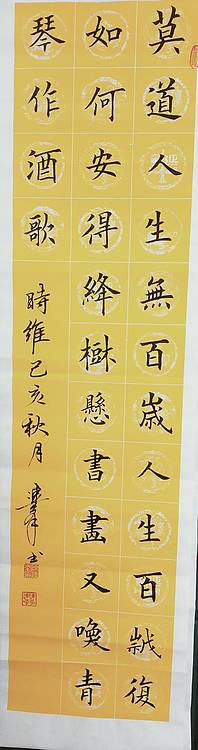 莫道人生無百歲人生百歲復
如何安得絳樹懸書畫又喚青
琴作酒歌
時維己亥秋月 书